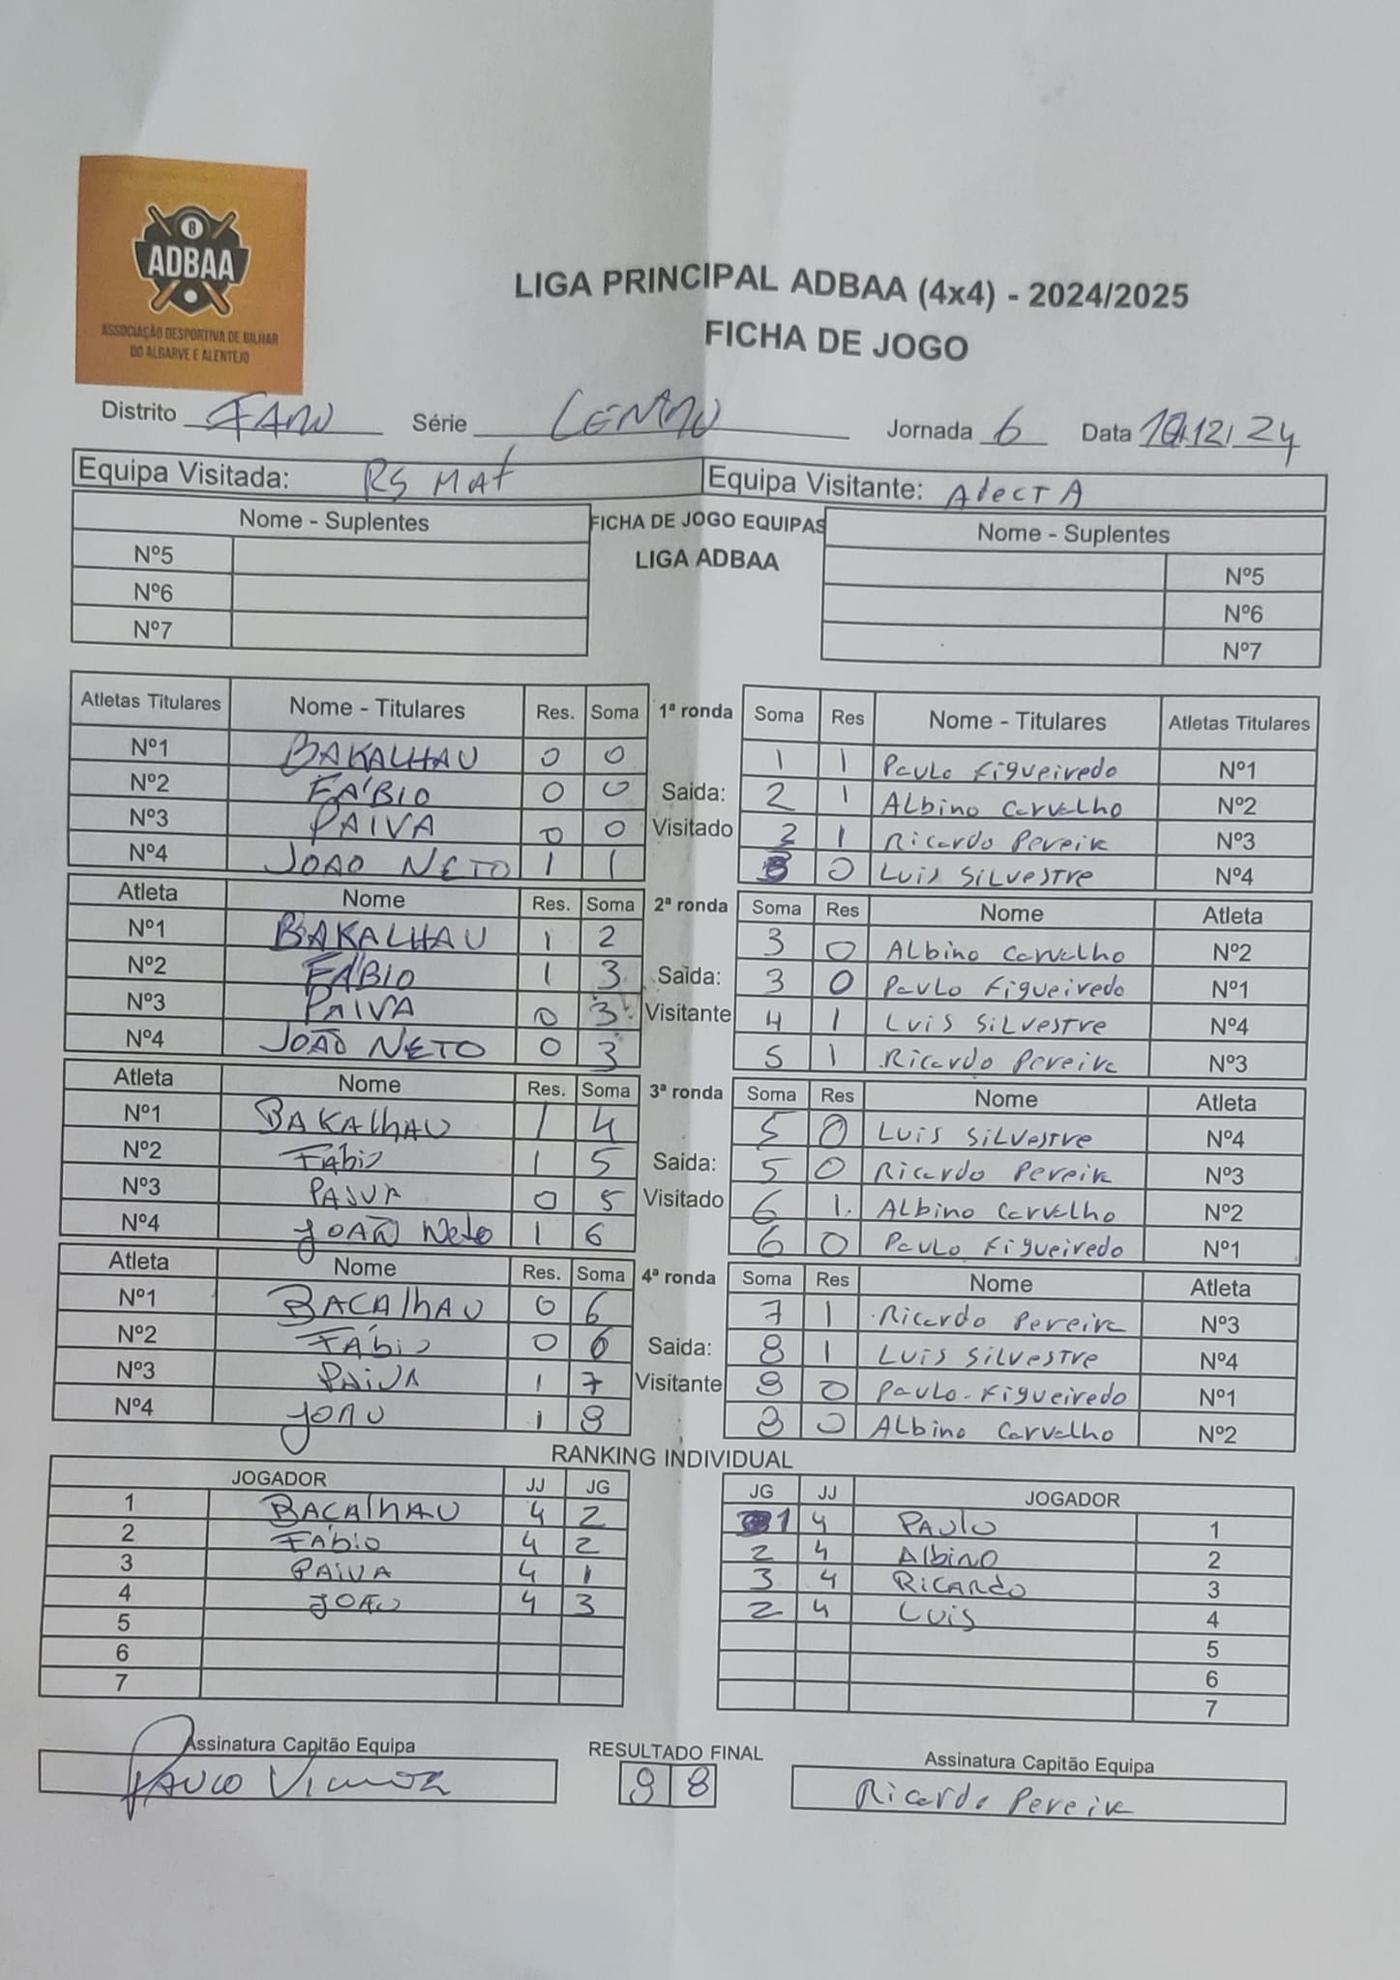 8
ADBAA
ASSOCIAÇÃO DESPORTIVA DE BILHAR
DO ALGARVE E ALENTEJO
LIGA PRINCIPAL ADBAA (4x4) - 2024/2025
FICHA DE JOGO
Distrito FARO Série CENTRO Jornada 6 Data 12/24
Equipa Visitada: RS MAT Equipa Visitante: AlectA
Nome - Suplentes FICHA DE JOGO EQUIPAS Nome - Suplentes
Nº5 LIGA ADBAA Nº5
Nº6 Nº6
Nº7 Nº7
Atletas Titulares Nome - Titulares Res. Soma 1ª ronda Soma Res Nome - Titulares Atletas Titulares
Nº1 BAKALHAU 0 0 1 1 Paulo Figueiredo Nº1
Nº2 FÁBIO 0 0 Saida: 2 1 Albino Carvalho Nº2
Nº3 PAIVA 0 0 Visitado 3 1 Ricardo Pereira Nº3
Nº4 JOÃO NETO 1 1 3 0 Luis Silvestre Nº4
Atleta Nome Res. Soma 2ª ronda Soma Res Nome Atleta
Nº1 BAKALHAU 1 2 3 0 Albino Carvalho Nº2
Nº2 FÁBIO 1 3 Saida: 3 0 Paulo Figueiredo Nº1
Nº3 PAIVA 0 3 Visitante 4 1 Luis Silvestre Nº4
Nº4 JOÃO NETO 0 3 5 1 Ricardo Pereira Nº3
Atleta Nome Res. Soma 3ª ronda Soma Res Nome Atleta
Nº1 BAKAlhAU 1 4 5 0 Luis Silvestre Nº4
Nº2 Fábio 1 5 Saida: 5 0 Ricardo Pereira Nº3
Nº3 PAIVA 0 5 Visitado 6 1 Albino Carvalho Nº2
Nº4 JOÃO Neto 1 6 6 0 Paulo Figueiredo Nº1
Atleta Nome Res. Soma 4ª ronda Soma Res Nome Atleta
Nº1 BACAlhAU 0 6 7 1 Ricardo Pereira Nº3
Nº2 FÁbio 0 6 Saida: 8 1 Luis Silvestre Nº4
Nº3 PAIVA 1 7 Visitante 8 0 Paulo Figueiredo Nº1
Nº4 JOÃO 1 8 8 0 Albino Carvalho Nº2
RANKING INDIVIDUAL
JOGADOR JJ JG JG JJ JOGADOR
1 BACAlhAU 4 2 1 4 PAulo 1
2 FÁbio 4 2 2 4 Albino 2
3 PAIVA 4 1 3 4 RICARDO 3
4 JOÃO 4 3 2 4 Luis 4
5 5
6 6
7 7
Assinatura Capitão Equipa RESULTADO FINAL Assinatura Capitão Equipa
PAULO 8 8 Ricardo Pereira